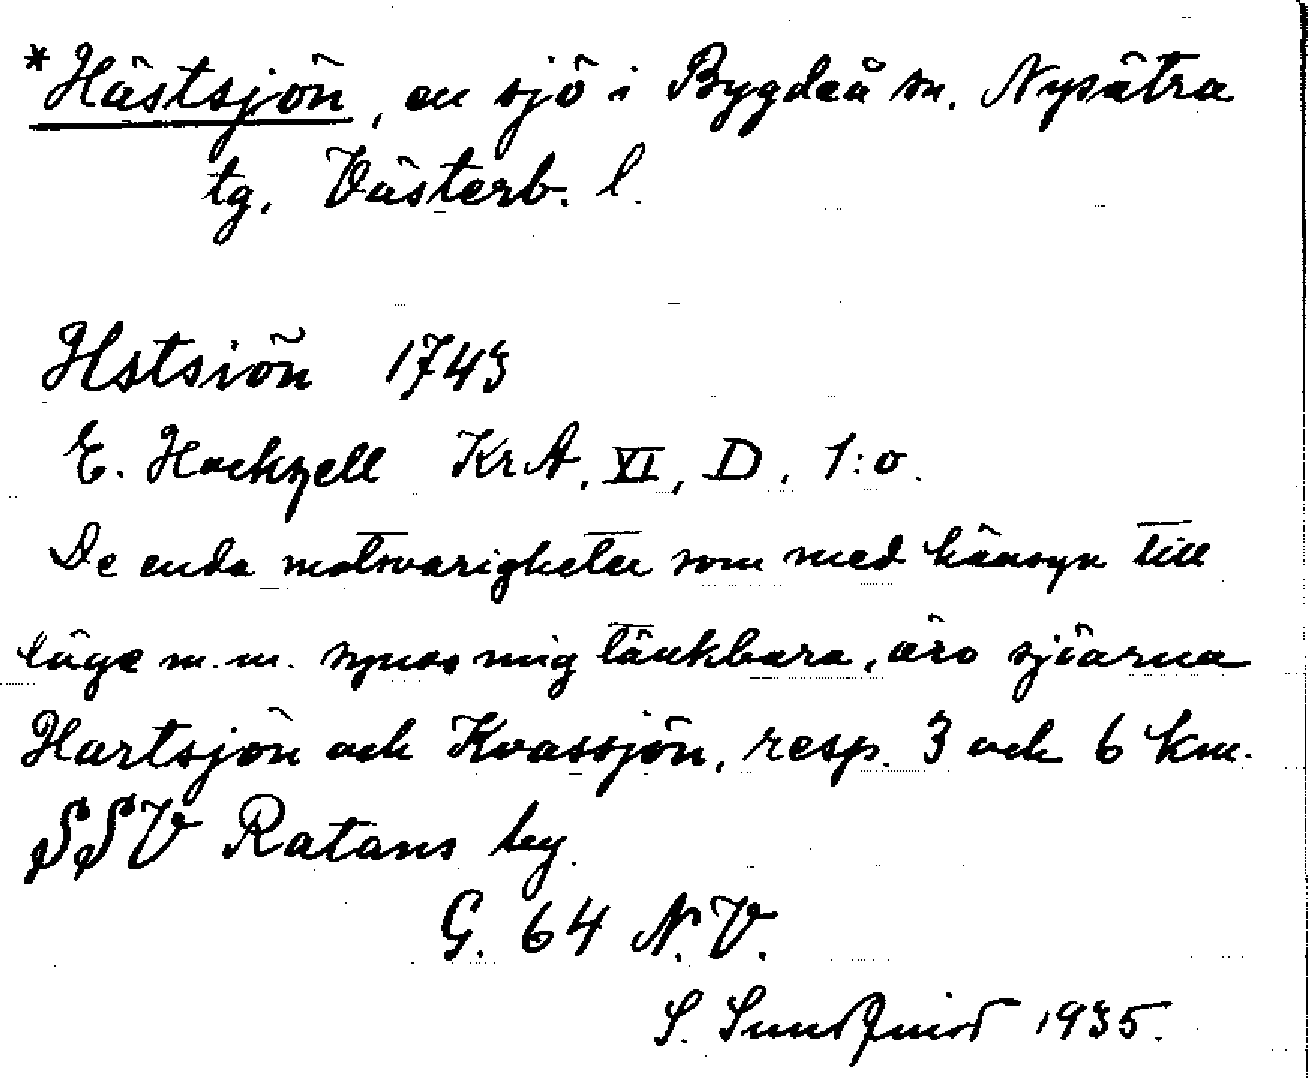 *Hästsjön, en sjö i Bygdeå sn. Nysätra
tg. Västerb. l.
Hstsiön 1743
E. Hackzell KrA, VI, D, 1:o.
De enda motsvarigheter som med hänsyn till
läge m.m. synes mig tänkbara, äro sjöarna
Hartsjön och Kvassjön, resp. 3 och 6 km.
SSV Ratans by.
G. 64 N.V.
S. Sundqvist 1935.